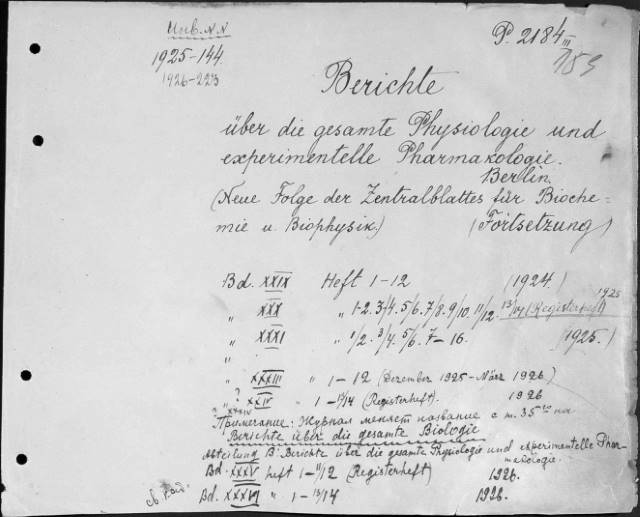 Инв. N.N
1925-144.
1926-223
P. 2184 III
153
Berichte
über die gesamte Physiologie und
experimentelle Pharmakologie.
Berlin.
(Neue Folge der Zentralblattes für Bioche=
mie u. Biophysik.) (Fortsetzung)
Bd. XXIX Heft 1-12 (1924.)
„ XXX „ 1-2. 3/4. 5/6. 7/8. 9/10. 11/12. 13/14 (Registerheft) 1925
„ XXXI „ 1/2. 3/4. 5/6. 7-16. (1925.)
„
„ XXXIII „ 1-12 (Dezember 1925-März 1926)
? „ XXIV „ 1-13/14 (Registerheft). 1926
? XXXIV
Примечание: Журнал меняет название с т. 35-го на
Berichte über die gesamte Biologie
Abteilung B: Berichte über die gesamte Physiologie und experimentelle Phar-
makologie.
Bd. XXXV Heft 1-11/12 (Registerheft) 1926.
Bd. XXXVI „ 1-13/14 1926.